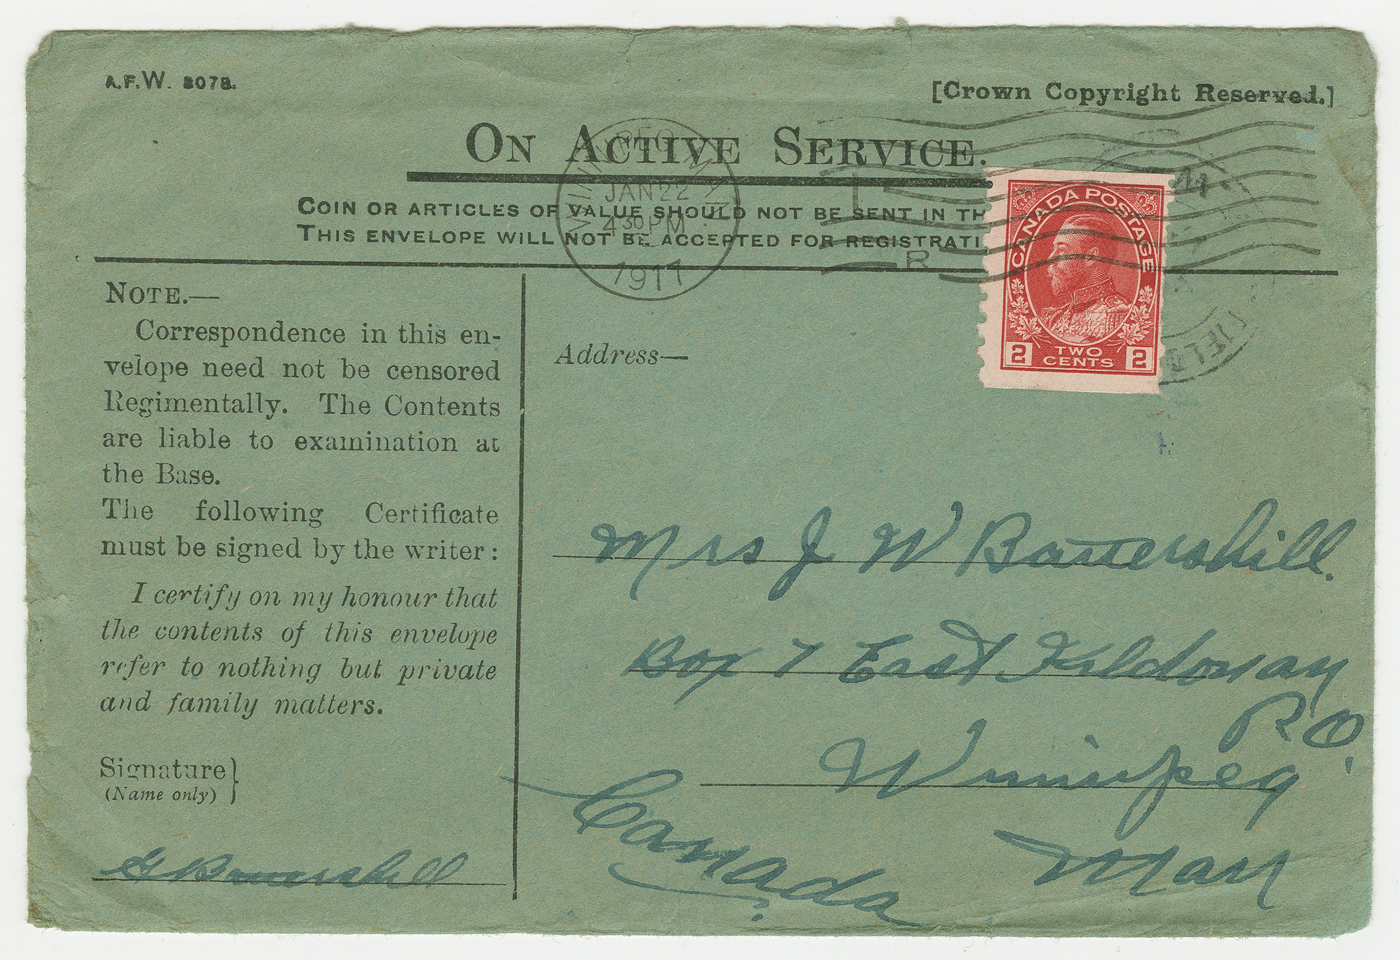 A.F.W. 3078.
[Crown Copyright Reserved.]
On Active Service.
Coin or articles of value should not be sent in th
This envelope will not be accepted for registrati
WINNIPEG MAN
JAN 22
4 30 PM
1917
R
CANADA POSTAGE
2 TWO CENTS 2
FIEL
Note.—
Correspondence in this en-
velope need not be censored
Regimentally. The Contents
are liable to examination at
the Base.
The following Certificate
must be signed by the writer:
I certify on my honour that
the contents of this envelope
refer to nothing but private
and family matters.
Signature}
(Name only)
G Battershill
Address—
Mrs J W Battershill.
Box 7 East Kildonan
P.O.
Winnipeg
Man
Canada